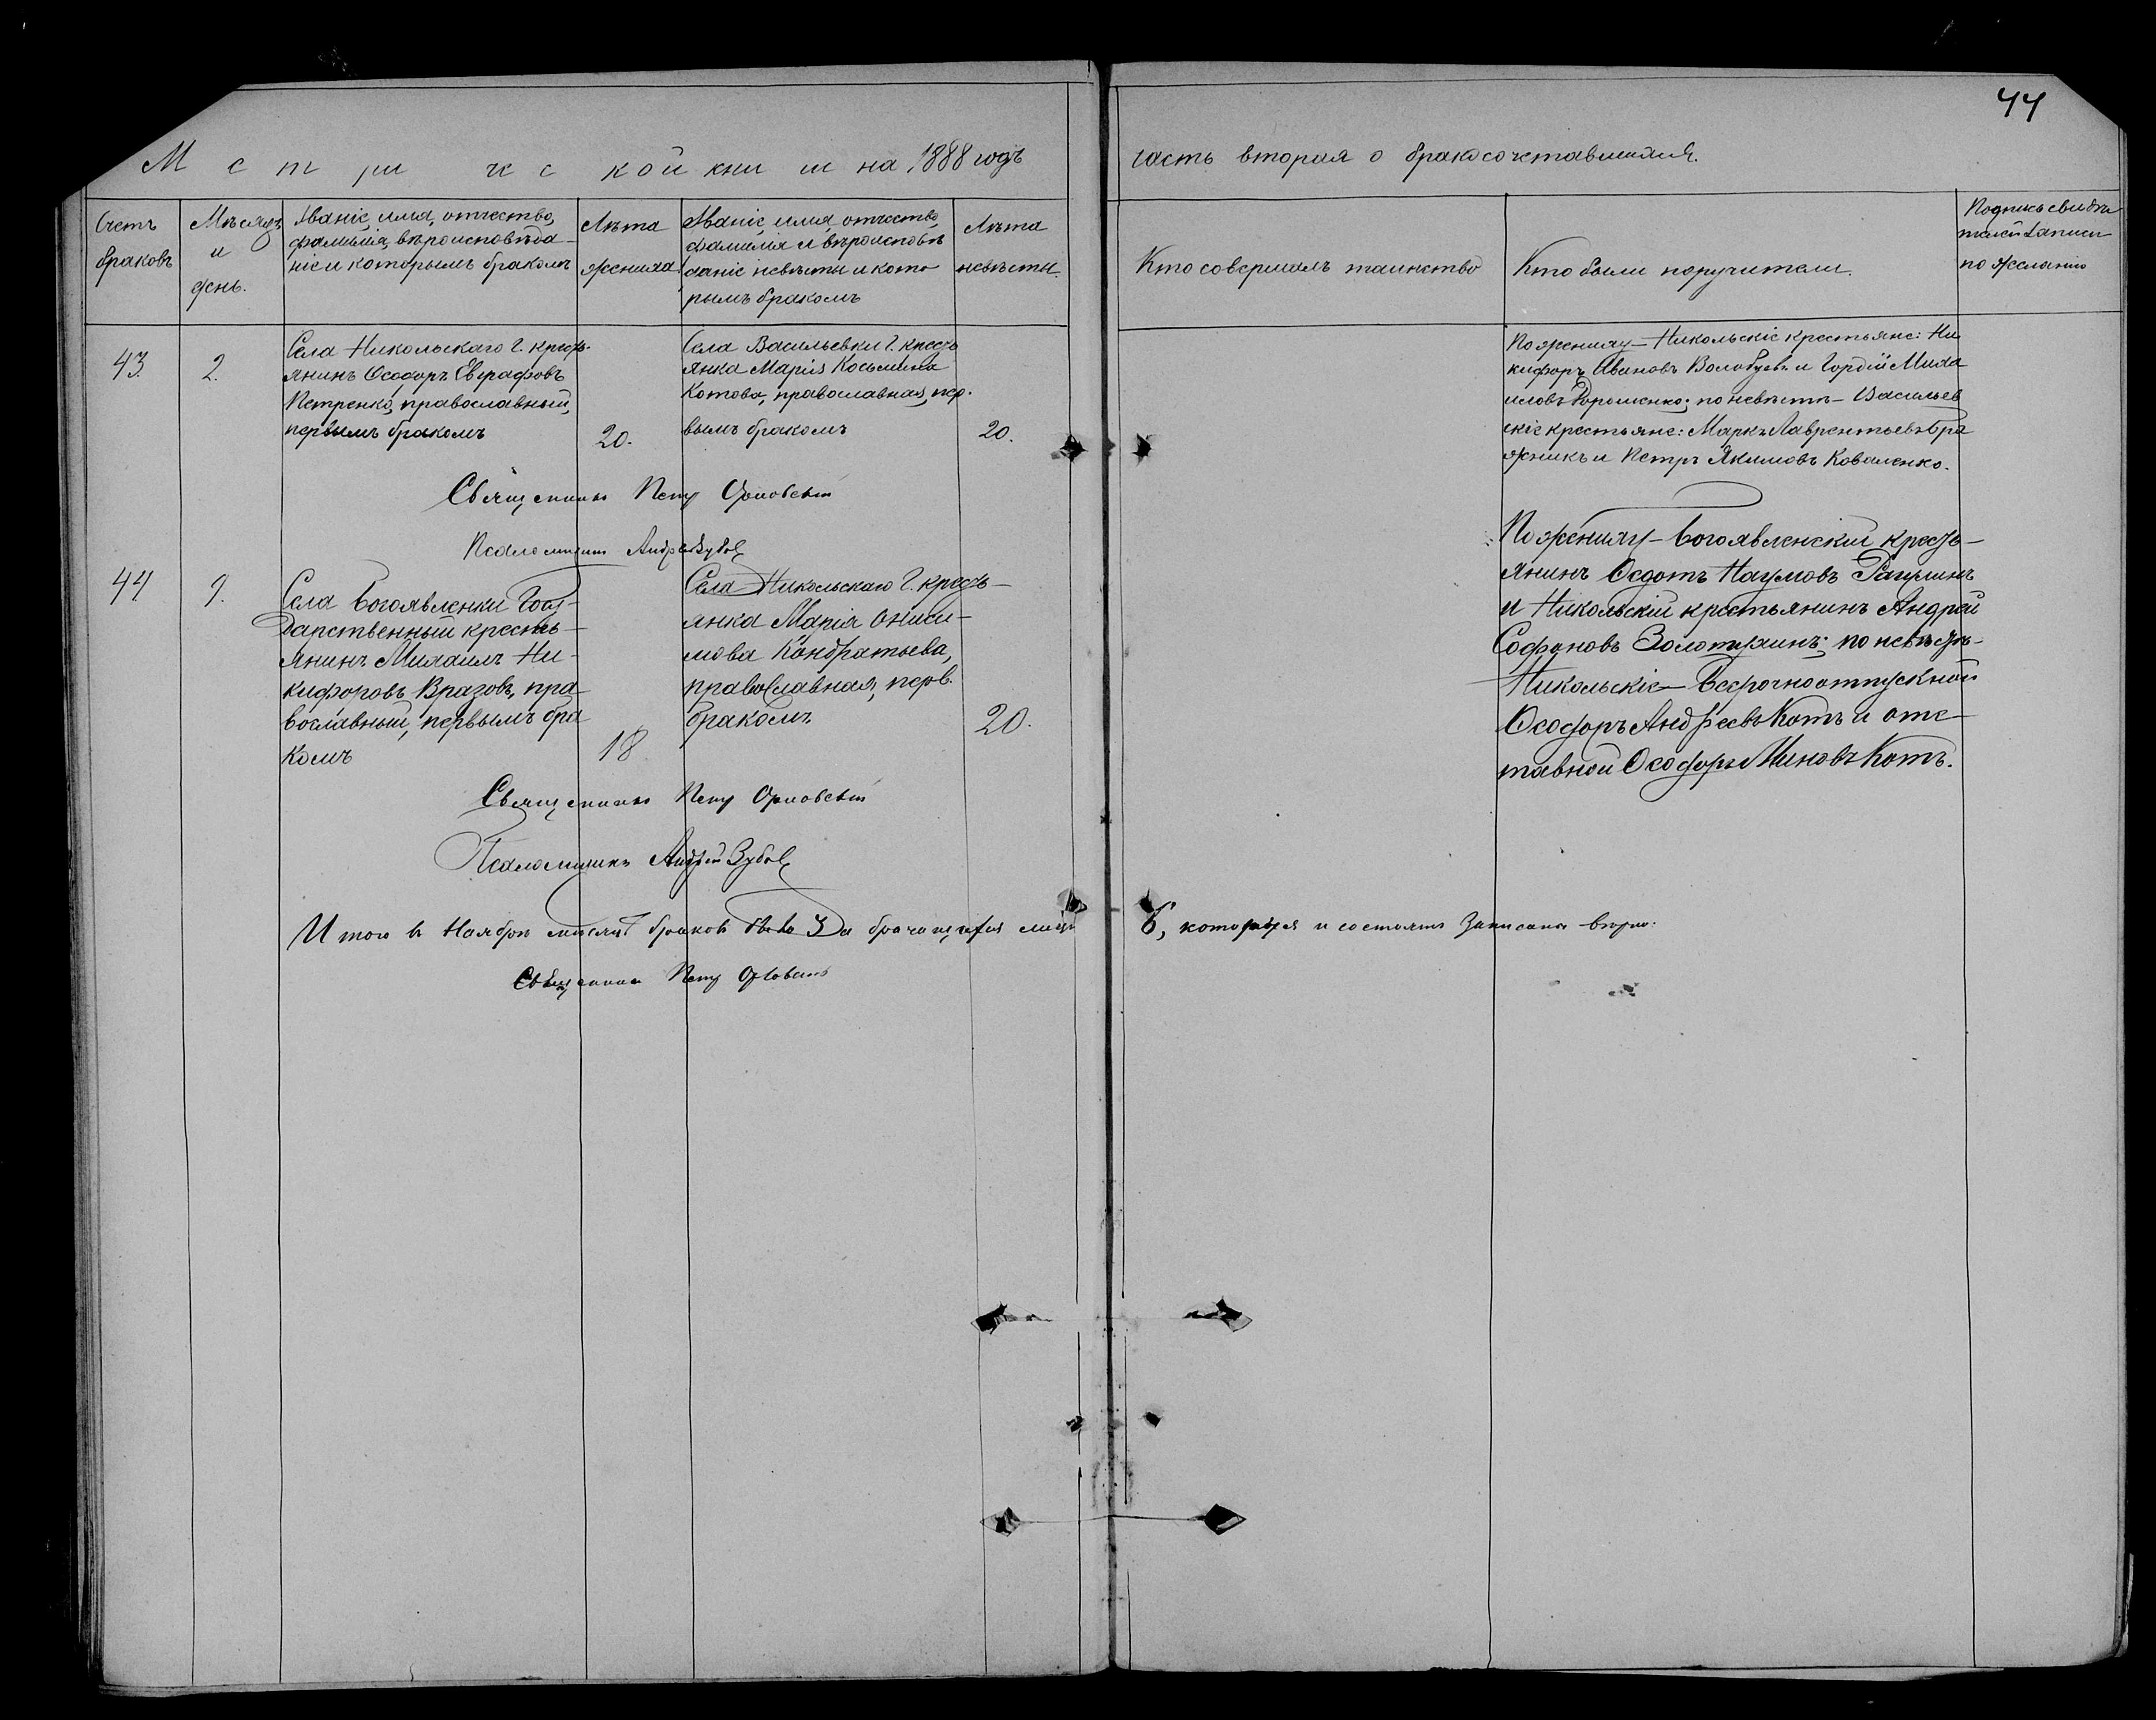 44
Метрической книги на 1888 годъ
часть вторая о бракосочетавшихся.
Счетъ
браковъ
Мѣсяцъ
и
день.
Званіе, имя, отчество,
фамилія, вѣроисповѣда-
ніе и которымъ бракомъ
Лѣта
жениха
Званіе, имя, отчество,
фамилія и вѣроисповѣ
даніе невѣсты и кото
рымъ бракомъ
Лѣта
невѣсты.
Кто совершалъ таинство
Кто были поручители.
Подпись свидѣ
телей записи
по желанію
43.
2.
Села Никольскаго Г. кресть-
янинъ Ѳеодоръ Евграфовъ
Петренко, православный,
первымъ бракомъ
20.
Села Васильевки Г. кресть
янка Марія Косьмина
Котова, православная, пер.
вымъ бракомъ
20.
По жениху – Никольскіе крестьяне: Ни
кифоръ Ивановъ Волобуевъ и Гордій Миха
иловъ Дорошенко; по невѣстѣ – Васильев
скіе крестьяне: Маркъ Лаврентьевъ Бра
жникъ и Петръ Якимовъ Коваленко.
Священникъ Петръ Орловскій
Псаломщикъ Андрей Зубовъ
44.
9.
Села Богоявленки Госу-
дарственный кресть-
янинъ Михаилъ Ни-
кифоровъ Вразовъ, пра
вославный, первымъ бра
комъ
18
Села Никольскаго Г. кресть-
янка Марія Ониси-
мова Кондратьева,
православная, перв.
бракомъ
20.
По жениху – Богоявленскій кресть-
янинъ Ѳедотъ Наумовъ
и Никольскій крестьянинъ Андрей
Софоновъ по невѣстѣ-
Никольскіе – безсрочноотпускной
Ѳеодоръ Андреевъ Котъ и отс-
тавной Ѳеодоръ Миновъ Котъ.
Священникъ Петръ Орловскій
Псаломщикъ Андрей Зубовъ
Итого въ Ноябрѣ мѣсяцѣ браковъ было 3 а брачащихся лицъ
6, которыя и состоятъ записаны вѣрно.
Священникъ Петръ Орловскій